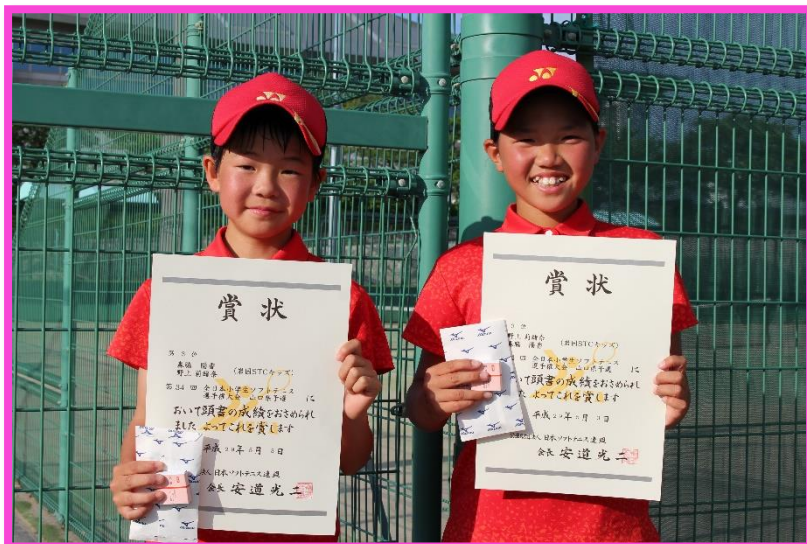 賞状
第3位
森脇
野上 莉緒奈
(岩国STCキッズ)
第34回 全日本小学生ソフトテニス
選手権大会 山口県予選 に
おいて頭書の成績をおさめられ
ました よってこれを賞します
平成29年5月3日
法人 日本ソフトテニス連盟
会長 安道光二
賞状
3位
野上 莉緒奈
森脇
(岩国STCキッズ)
回 全日本小学生ソフトテニス
選手権大会 山口県予選 に
いて頭書の成績をおさめられ
した よってこれを賞します
平成29年5月3日
法人 日本ソフトテニス連盟
会長 安道光二
MIZUNO